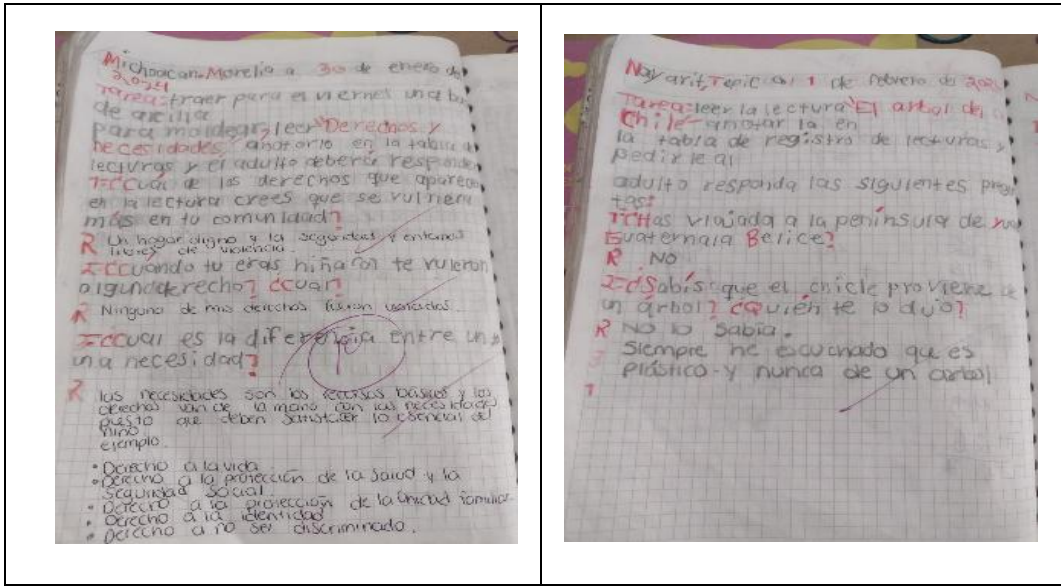 Michoacan-Morelia a 30 de enero del
2024
Tarea: traer para el viernes una
de arcilla
para moldear, leer "Derechos y
necesidades" anotarlo en la tabla de
lecturas y el adulto deberá responder
1-¿Cuál de los derechos que aparecen
en la lectura crees que se vulnera
más en tu comunidad?
R Un hogar digno y la seguridad y entornos
libres de violencia.
2-¿Cuando tu eras niña(o) te
algun derecho? ¿cual?
R Ninguno de mis derechos fueron
3-¿Cual es la diferencia entre un
una necesidad?
R las necesidades son los recursos básicos y los
derechos van de la mano con las necesidades
puesto que deben satisfacer lo esencial del
niño
ejemplo.
• Derecho a la vida
• Derecho a la protección de la salud y la
seguridad social.
• Derecho a la protección de la unidad familiar
• Derecho a la identidad
• Derecho a no ser discriminado.
Nayarit, Tepic a 1 de febrero de
Tarea: leer la lectura "El arbol de
Chile" anotar la en
la tabla de registro de lecturas y
pedirle al
adulto responda las siguientes
tas:
1-¿Has viajada a la península de
Guatemala Belice?
R NO
2-¿Sabís que el chicle proviene de
un árbol? ¿Quién te lo dijo?
R NO lo sabía.
Siempre he escuchado que es
plástico y nunca de un arbol